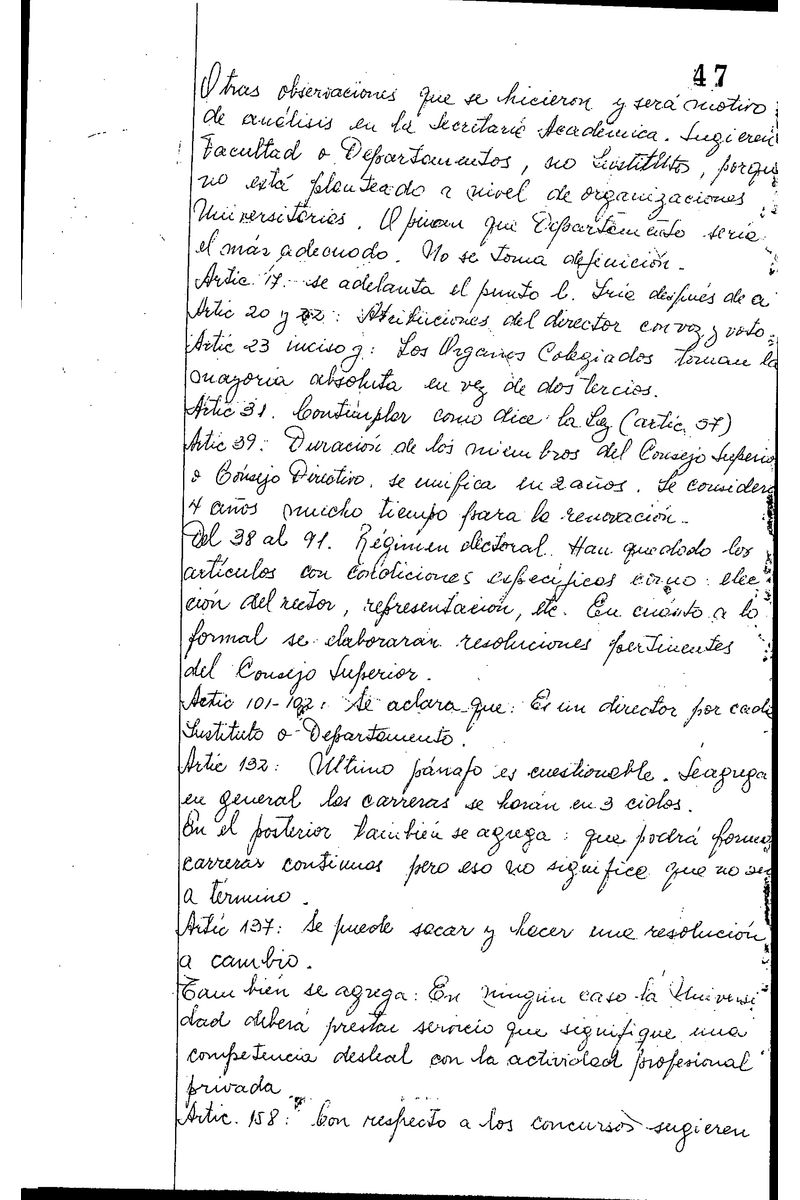 47
Otras observaciones que se hicieron y será motivo
de análisis en la Secretaría Académica. Sugieren
Facultad o Departamentos, no Institutos, porque
no está planteado a nivel de organizaciones
Universitarias. Opinan que Departamento sería
el más adecuado. No se toma definición.
Artic. 17. se adelanta el punto l. Iría después de a
Artic 20 y 22: Atribuciones del director con voz y voto.
Artic 23 inciso g: Los Organos Colegiados toman la
mayoría absoluta en vez de dos tercios.
Artic 31. Contemplar como dice la Ley (artic. 57)
Artic 39: Duración de los miembros del Consejo Superior
o Consejo Directivo, se unifica en 2 años. Se considera
4 años mucho tiempo para la renovación.
Del 38 al 91. Régimen electoral. Han quedado los
artículos con condiciones específicas como: elec
ción del rector, representación, etc. En cuánto a lo
formal se elaborarán resoluciones pertinentes
del Consejo Superior.
Artic 101-102: Se aclara que: Es un director por cada
Instituto o Departamento.
Artic 132: Ultimo párrafo es cuestionable. Se agrega
en general las carreras se harán en 3 ciclos.
En el posterior también se agrega: que podrá formar
carreras continuas pero eso no significa que no
a término.
Artic 137: Se puede sacar y hacer una resolución
a cambio.
También se agrega: En ningún caso la Universi
dad deberá prestar servicio que signifique una
competencia desleal con la actividad profesional
privada
Artic. 158: Con respecto a los concursos sugieren